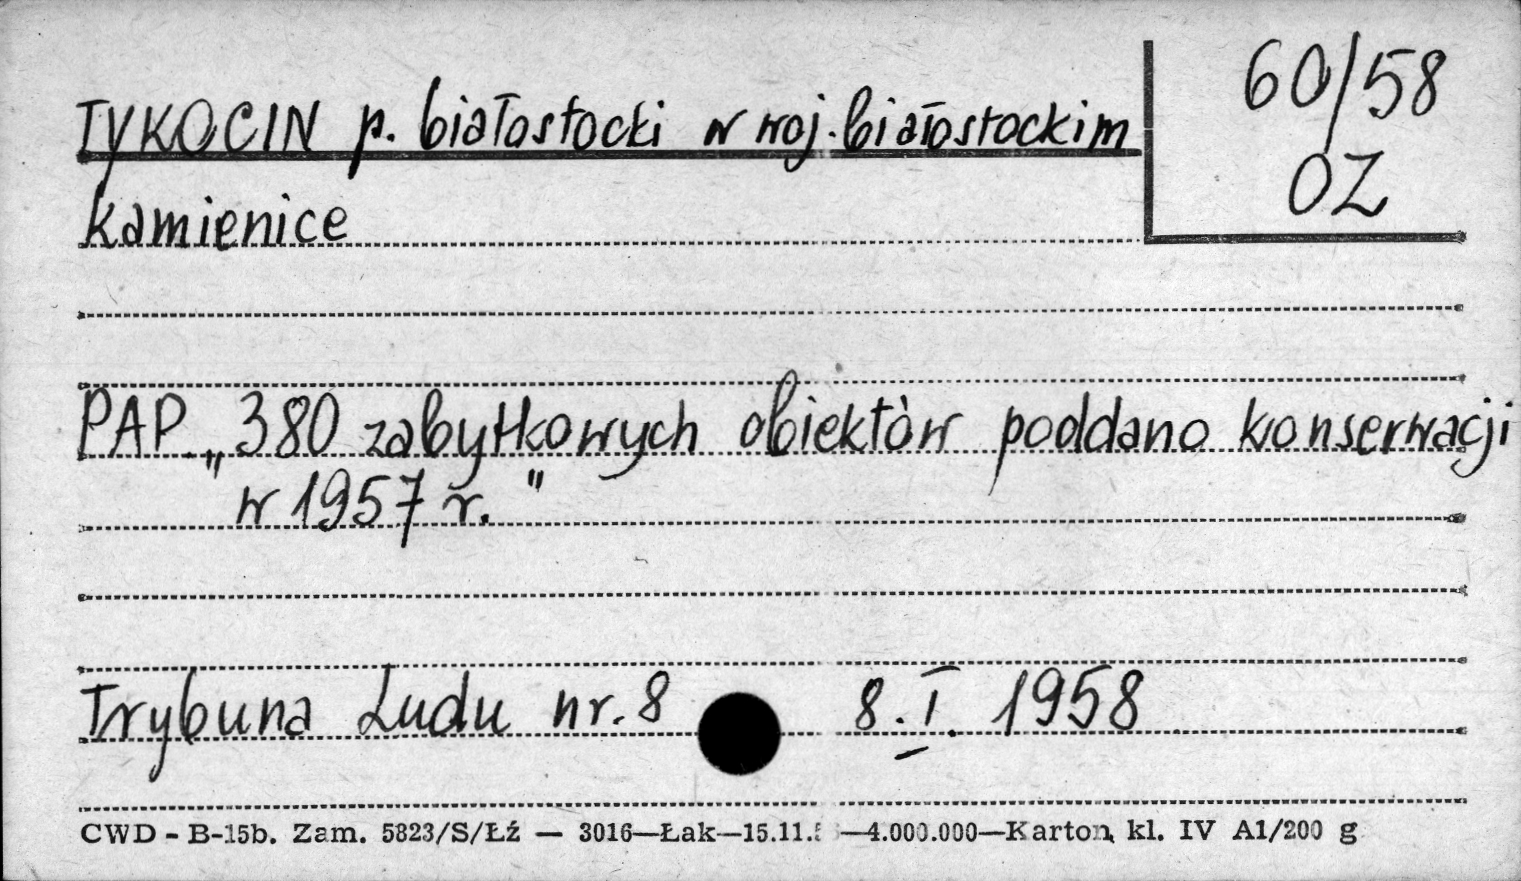 TYKOCIN p. białostocki w woj. białostockim
60/58
OZ
kamienice
PAP „380 zabytkowych obiektów poddano konserwacji
w 1957 r."
Trybuna Ludu nr. 8 8. I. 1958
CWD - B-15b. Zam. 5823/S/Łź — 3016—Łak—15.11. —4.000.000—Karton kl. IV A1/200 g